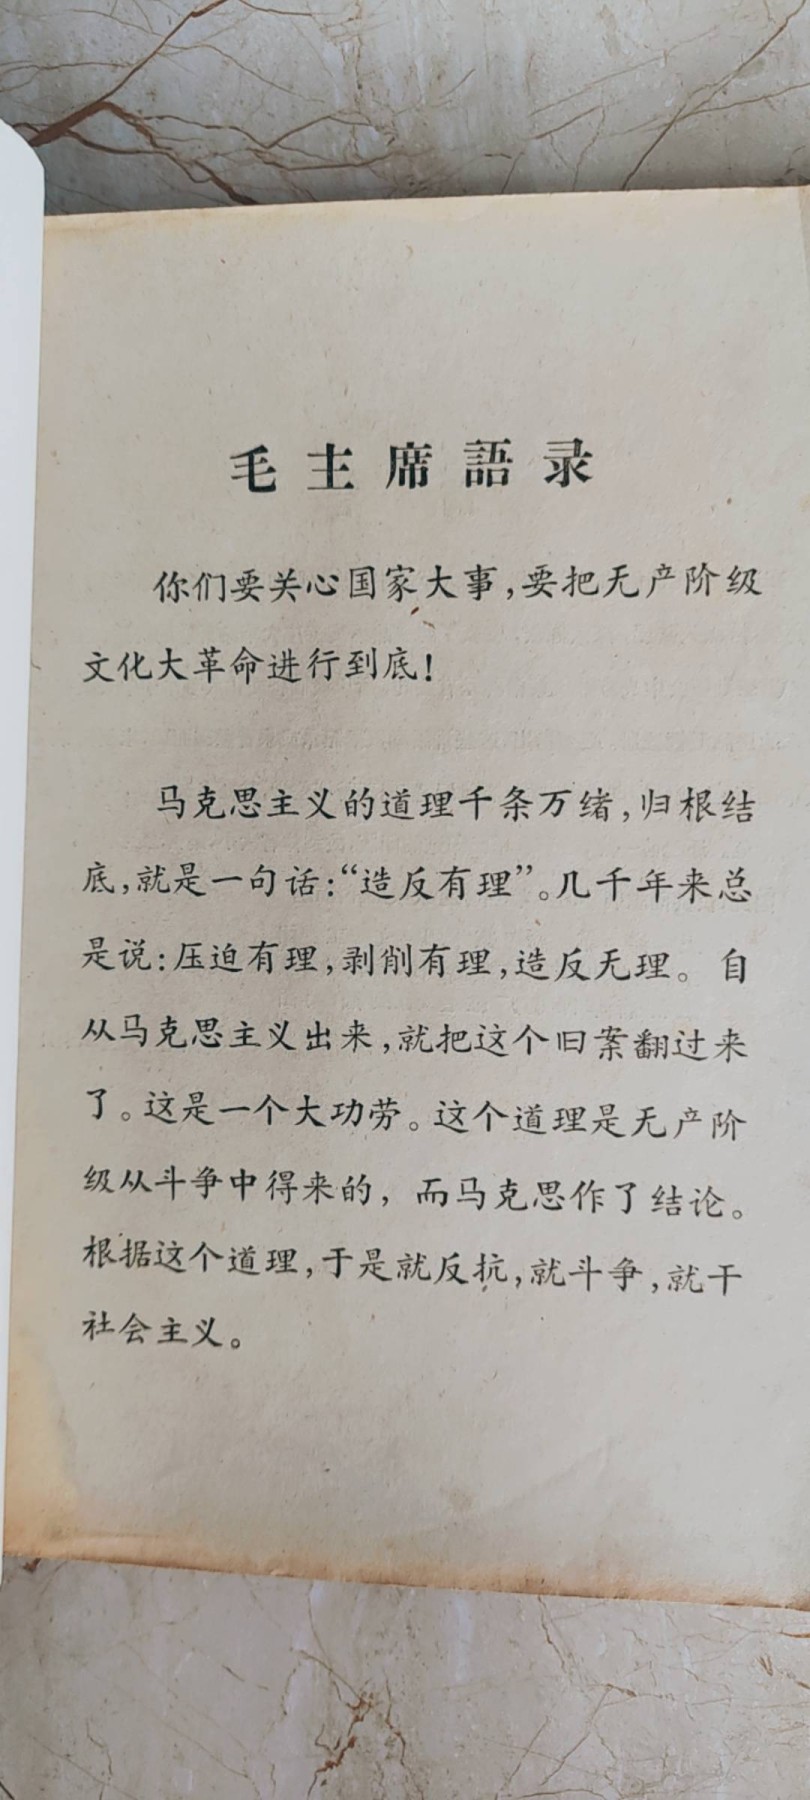 毛主席語录
你们要关心国家大事,要把无产阶级
文化大革命进行到底!
马克思主义的道理千条万绪,归根结
底,就是一句话:“造反有理”。几千年来总
是说:压迫有理,剥削有理,造反无理。自
从马克思主义出来,就把这个旧案翻过来
了。这是一个大功劳。这个道理是无产阶
级从斗争中得来的,而马克思作了结论。
根据这个道理,于是就反抗,就斗争,就干
社会主义。